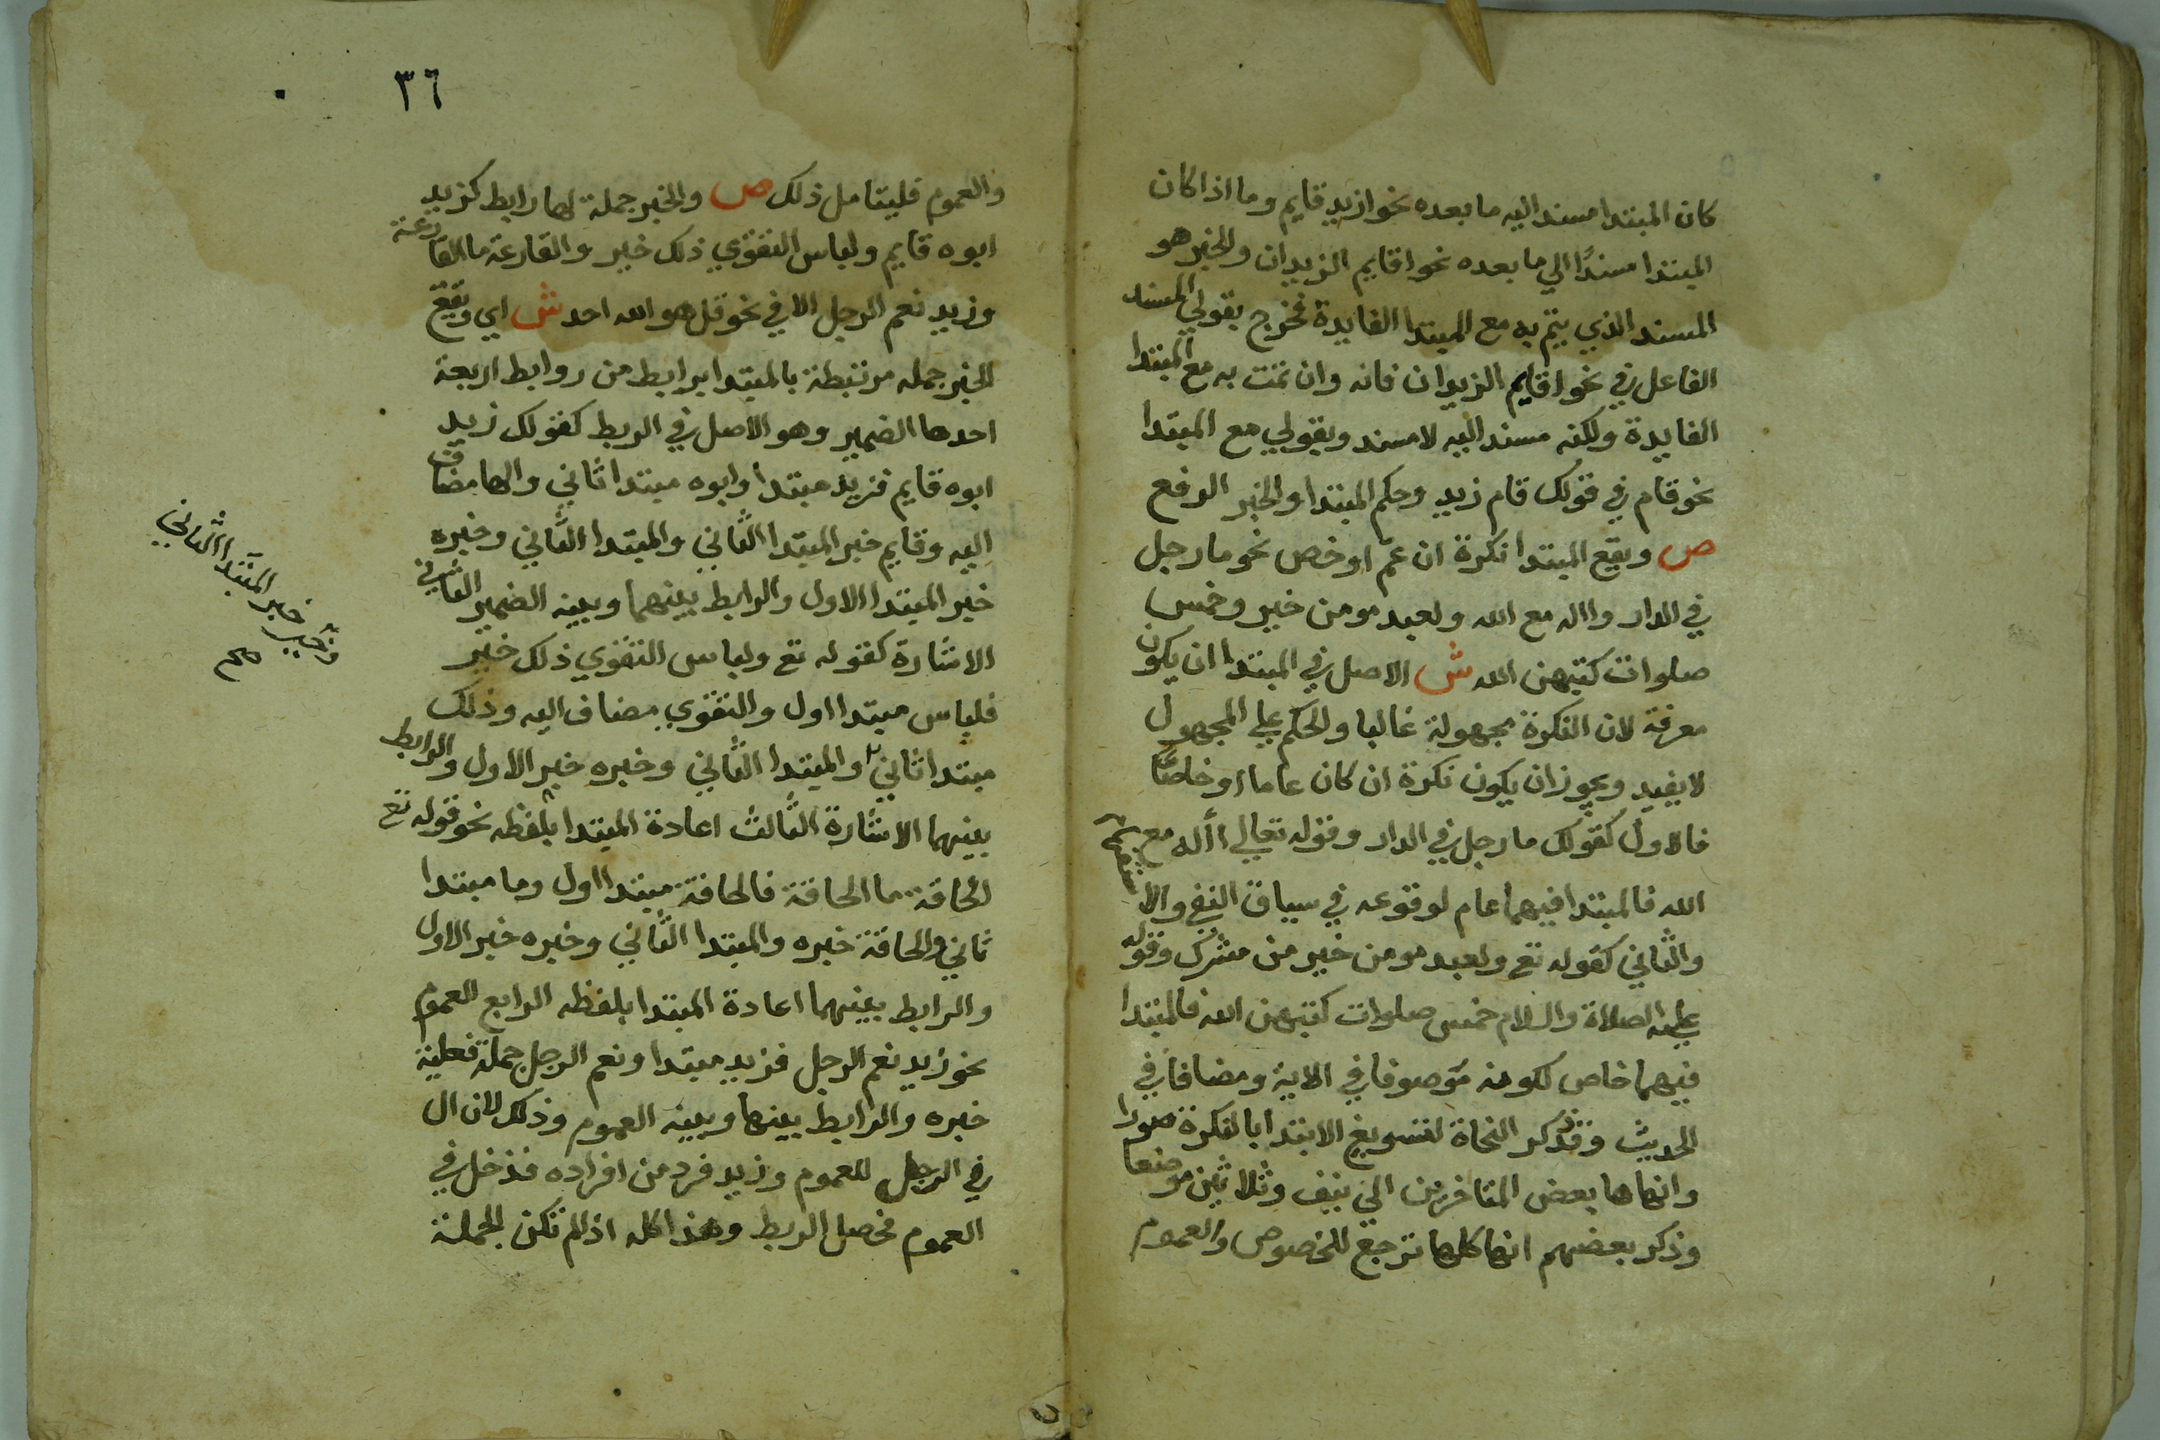 كان المبتدا مسندا اليه ما بعده نحو ازيد قايم وما اذا كان
المبتدا مسندًا الي ما بعده نحو اقايم الزيدان والخبر هو
المسند الذي يتم به مع المبتدا الفايدة فخرج بقولي المسند
الفاعل في نحو اقايم الزيدان فانه وان تمت به مع المبتدا
الفايدة ولكنه مسند اليه لا مسند وبقولي مع المبتدا
نحو قام في قولك قام زيد وحكم المبتدا والخبر الرفع
ص ويقع المبتدا نكرة ان عمّ او خص نحو ما رجل
في الدار واله مع الله ولعبد مومن خير وخمس
صلوات كتبهن الله ش الاصل في المبتدا ان يكون
معرفة لان النكرة مجهولة غالبا والحكم علي المجهول
لا يفيد ويجوز ان يكون نكرة ان كان عاما او خاصا
فالاول كقولك ما رجل في الدار وقوله تعالي أاله مع
الله فالمبتدا فيهما عام لوقوعه في سياق النفي والاستفهام
والثاني كقوله تع ولعبد مومن خير من مشرك وقوله
عليه الصلاة والسلام خمس صلوات كتبهن الله فالمبتدا
فيهما خاص لكونه موصوفا في الاية ومضافا في
الحديث وقد ذكر النحاة لتسويغ الابتدا بالنكرة صورا
وانهاها بعض المتاخرين الي نيف وثلاثين موضعا
وذكر بعضهم انها كلها ترجع للخصوص والعموم
٣٦
والعموم فليتامل ذلك ص والخبر جملة لها رابط كزيد
ابوه قايم ولباس التقوي ذلك خير والقارعة ما القارعة
وزيد نعم الرجل الا في نحو قل هو الله احد ش اي ويقع
الخبر جمله مرتبطة بالمبتدا برابط من روابط اربعة
احدها الضمير وهو الاصل في الربط كقولك زيد
ابوه قايم فزيد مبتدا وابوه مبتدا ثاني والها مضاف
اليه وقايم خبر المبتدا الثاني والمبتدا الثاني وخبره
خبر المبتدا الاول والرابط بينهما وبينه الضمير الثاني
الاشارة كقوله تع ولباس التقوي ذلك خير
فلباس مبتدا اول والتقوي مضاف اليه وذلك
مبتدا ثاني والمبتدا الثاني وخبره خبر الاول والرابط
بينهما الاشارة الثالث اعادة المبتدا بلفظه نحو قوله تع
الحاقة ما الحاقة فالحاقة مبتدا اول وما مبتدا
ثاني والحاقة خبره والمبتدا الثاني وخبره خبر الاول
والرابط بينهما اعادة المبتدا بلفظه الرابع العموم
نحو زيد نعم الرجل فزيد مبتدا ونعم الرجل جملة فعلية
خبره والرابط بينها وبينه العموم وذلك لان ال
في الرجل للعموم وزيد فرد من افراده فدخل في
العموم فحصل الربط وهذا كله اذا لم تكن الجملة
وخير خبر المبتدا الثاني
صح